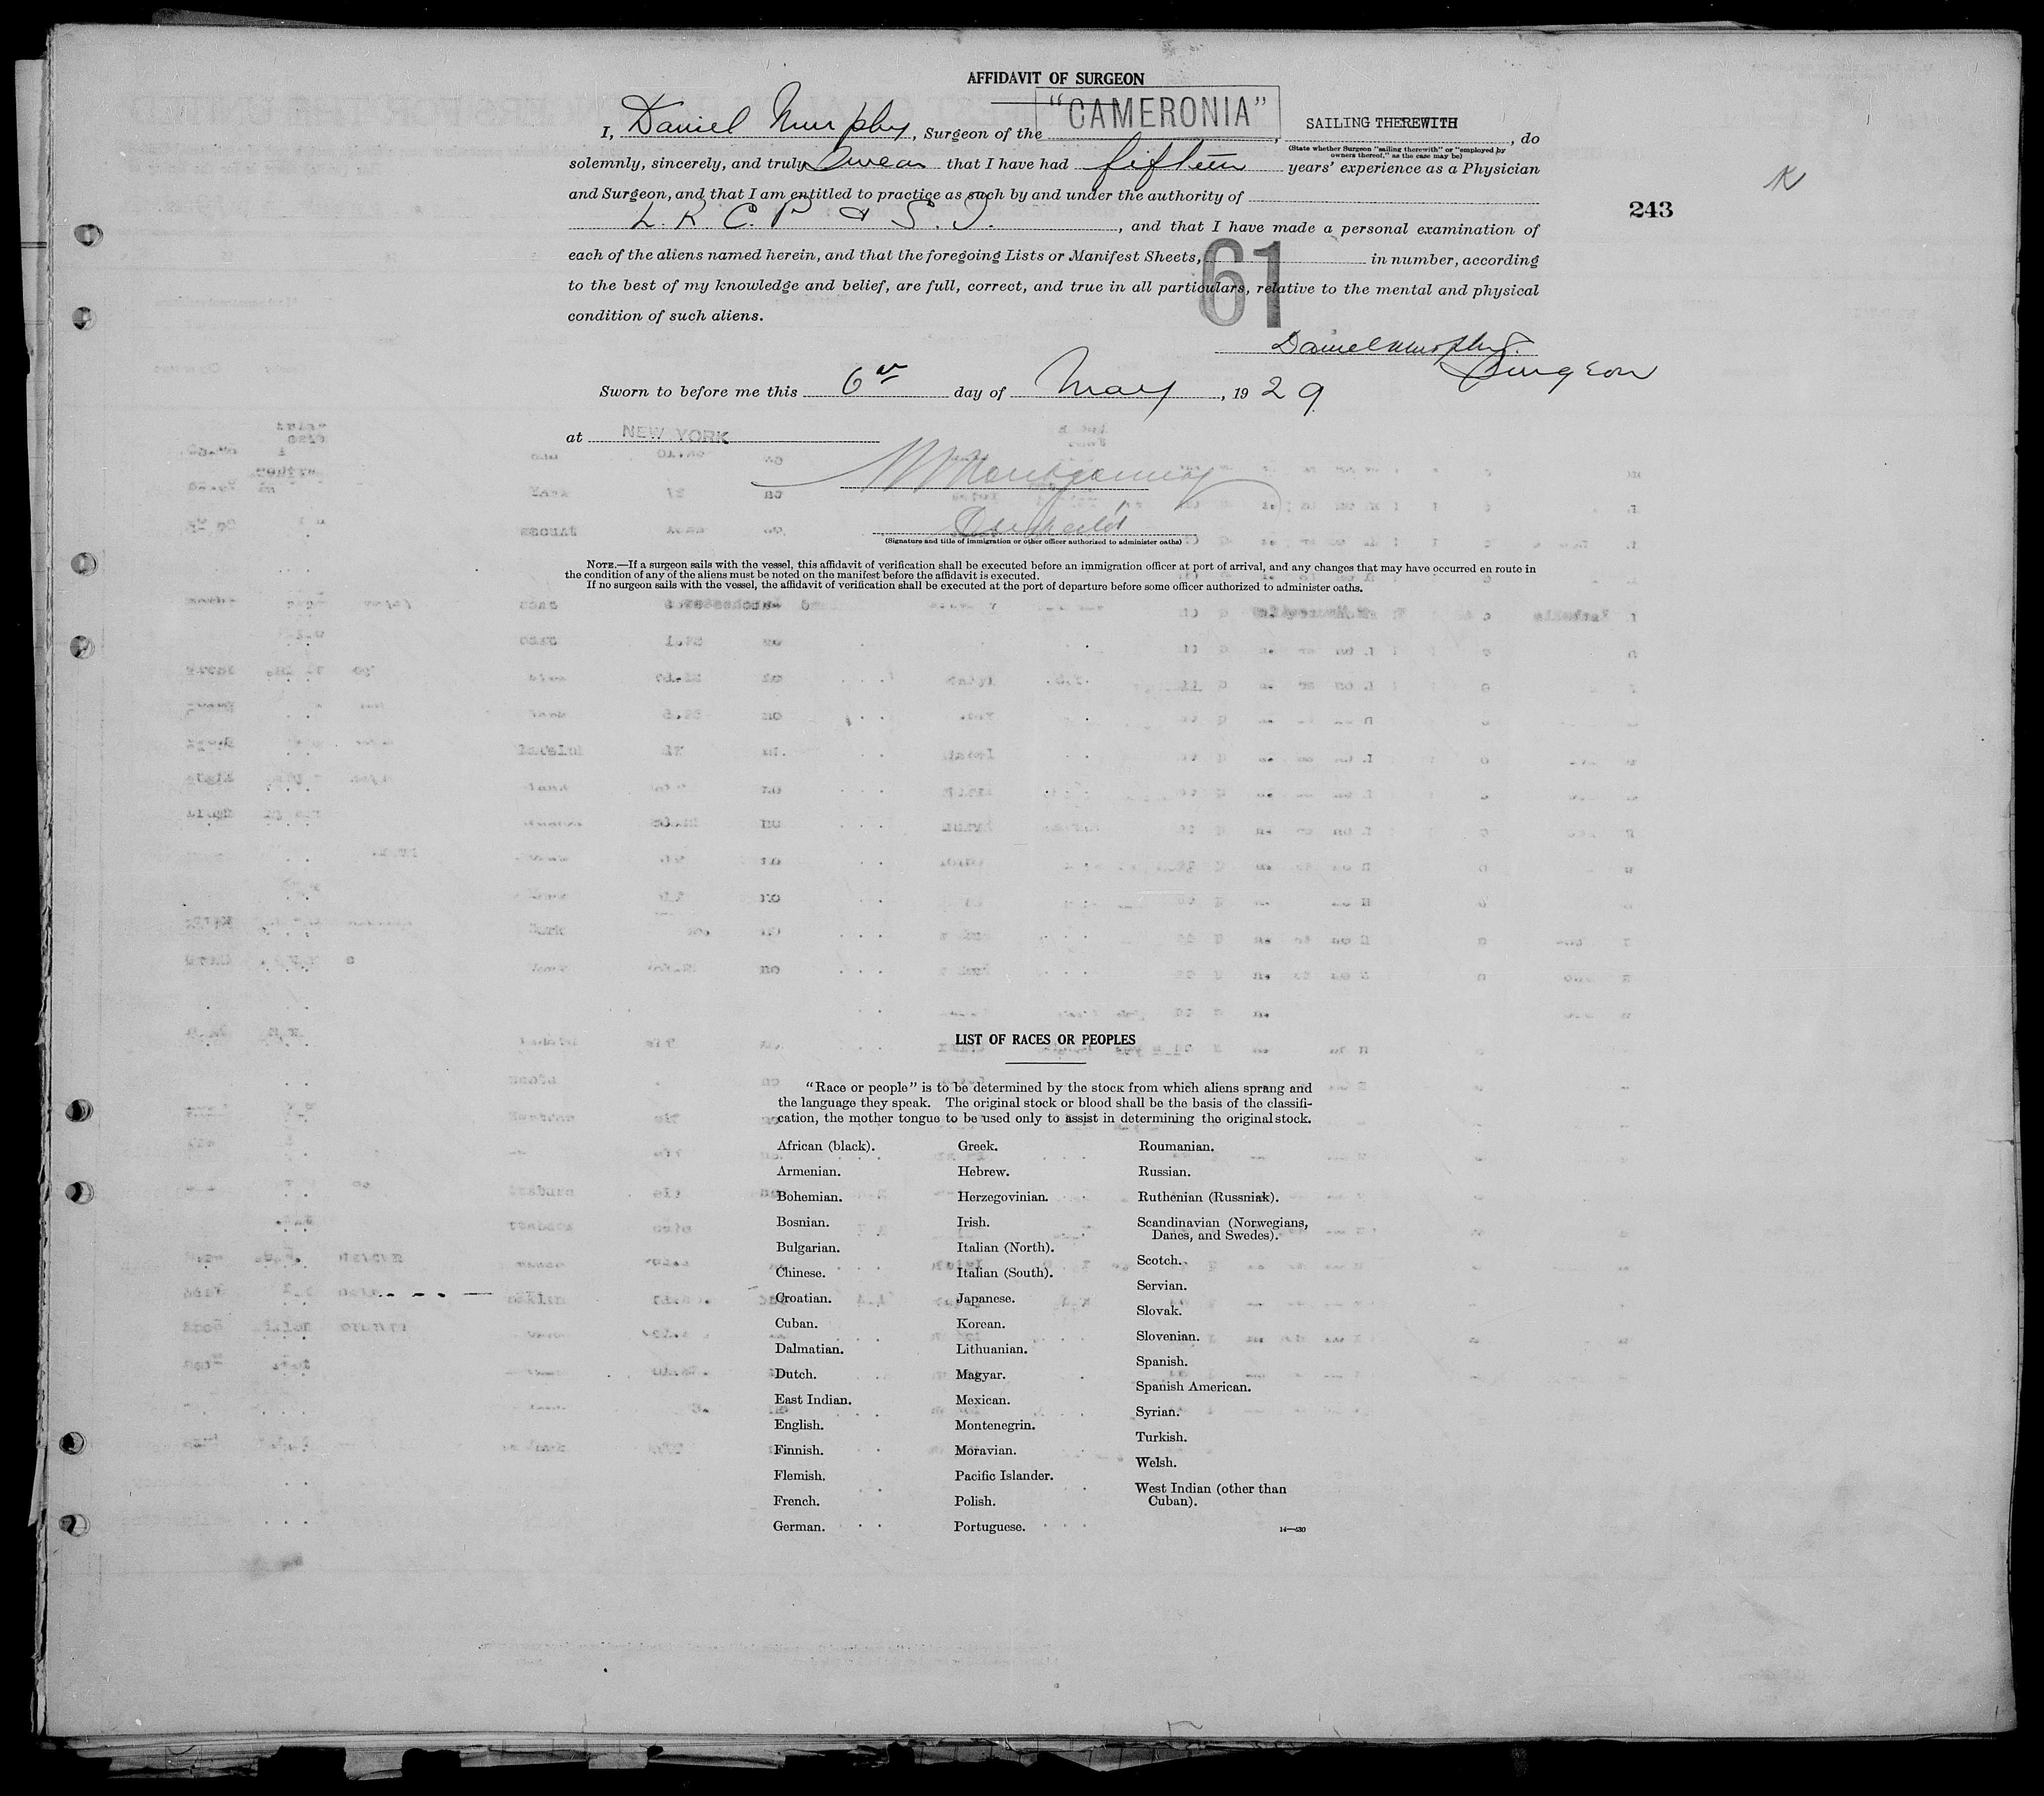 AFFIDAVIT OF SURGEON
I, Daniel Murphy, Surgeon of the "CAMERONIA", SAILING THEREWITH, do
(State whether Surgeon "sailing therewith" or "employed by
owners thereof," as the case may be)
solemnly, sincerely, and truly Swear that I have had fifteen years' experience as a Physician
and Surgeon, and that I am entitled to practice as such by and under the authority of
L. R. C. P & S. I., and that I have made a personal examination of
each of the aliens named herein, and that the foregoing Lists or Manifest Sheets, 61 in number, according
to the best of my knowledge and belief, are full, correct, and true in all particulars, relative to the mental and physical
condition of such aliens.
K
243
Daniel Murphy.
Surgeon
Sworn to before me this 6th day of May, 1929
at NEW YORK
Montgomery
(Signature and title of immigration or other officer authorized to administer oaths)
NOTE.—If a surgeon sails with the vessel, this affidavit of verification shall be executed before an immigration officer at port of arrival, and any changes that may have occurred en route in
the condition of any of the aliens must be noted on the manifest before the affidavit is executed.
If no surgeon sails with the vessel, the affidavit of verification shall be executed at the port of departure before some officer authorized to administer oaths.
LIST OF RACES OR PEOPLES
"Race or people" is to be determined by the stock from which aliens sprang and
the language they speak. The original stock or blood shall be the basis of the classifi-
cation, the mother tongue to be used only to assist in determining the original stock.
African (black).
Armenian.
Bohemian.
Bosnian.
Bulgarian.
Chinese.
Croatian.
Cuban.
Dalmatian.
Dutch.
East Indian.
English.
Finnish.
Flemish.
French.
German.
Greek.
Hebrew.
Herzegovinian.
Irish.
Italian (North).
Italian (South).
Japanese.
Korean.
Lithuanian.
Magyar.
Mexican.
Montenegrin.
Moravian.
Pacific Islander.
Polish.
Portuguese.
Roumanian.
Russian.
Ruthenian (Russniak).
Scandinavian (Norwegians,
Danes, and Swedes).
Scotch.
Servian.
Slovak.
Slovenian.
Spanish.
Spanish American.
Syrian.
Turkish.
Welsh.
West Indian (other than
Cuban).
14—430